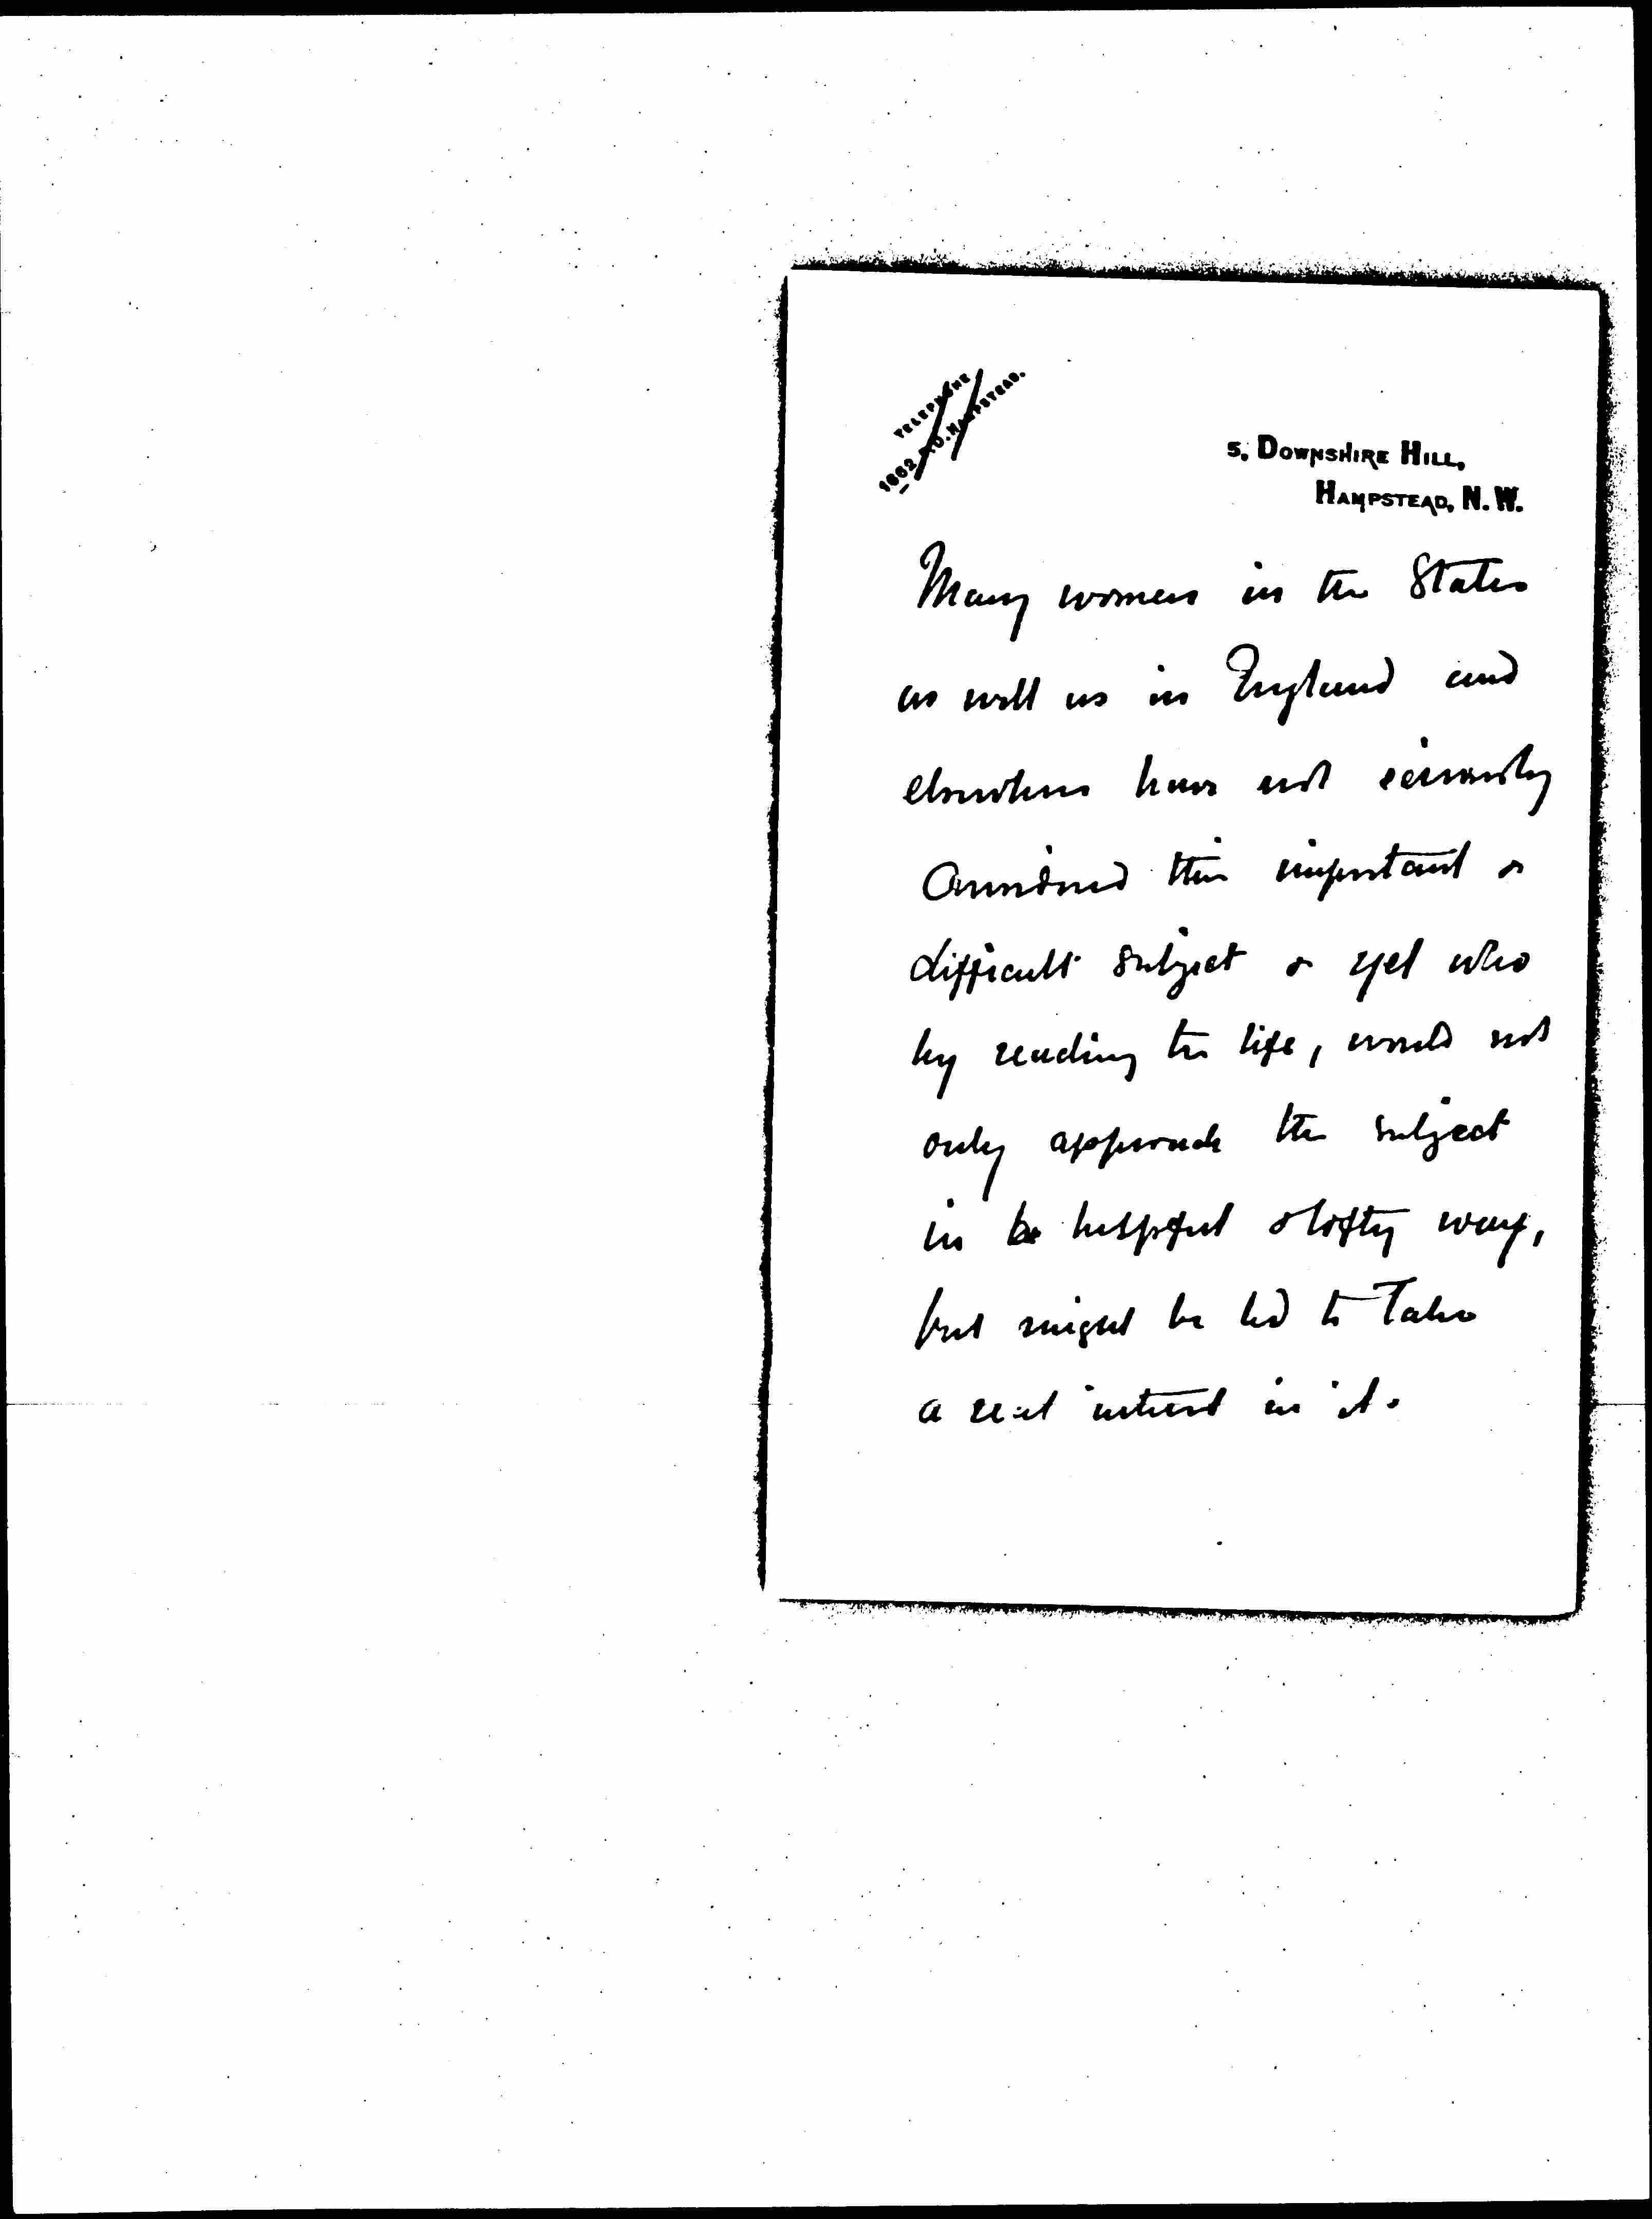 TELEPHONE
1662 P.O. HAMPSTEAD.
5, DOWNSHIRE HILL,
HAMPSTEAD, N.W.
Many women in the States
as well as in England and
elsewhere have not seriously
considered this important &
difficult subject & yet who
by reading the life, would not
only approach the subject
in helpful & lofty way,
but might be led to take
a real interest in it.